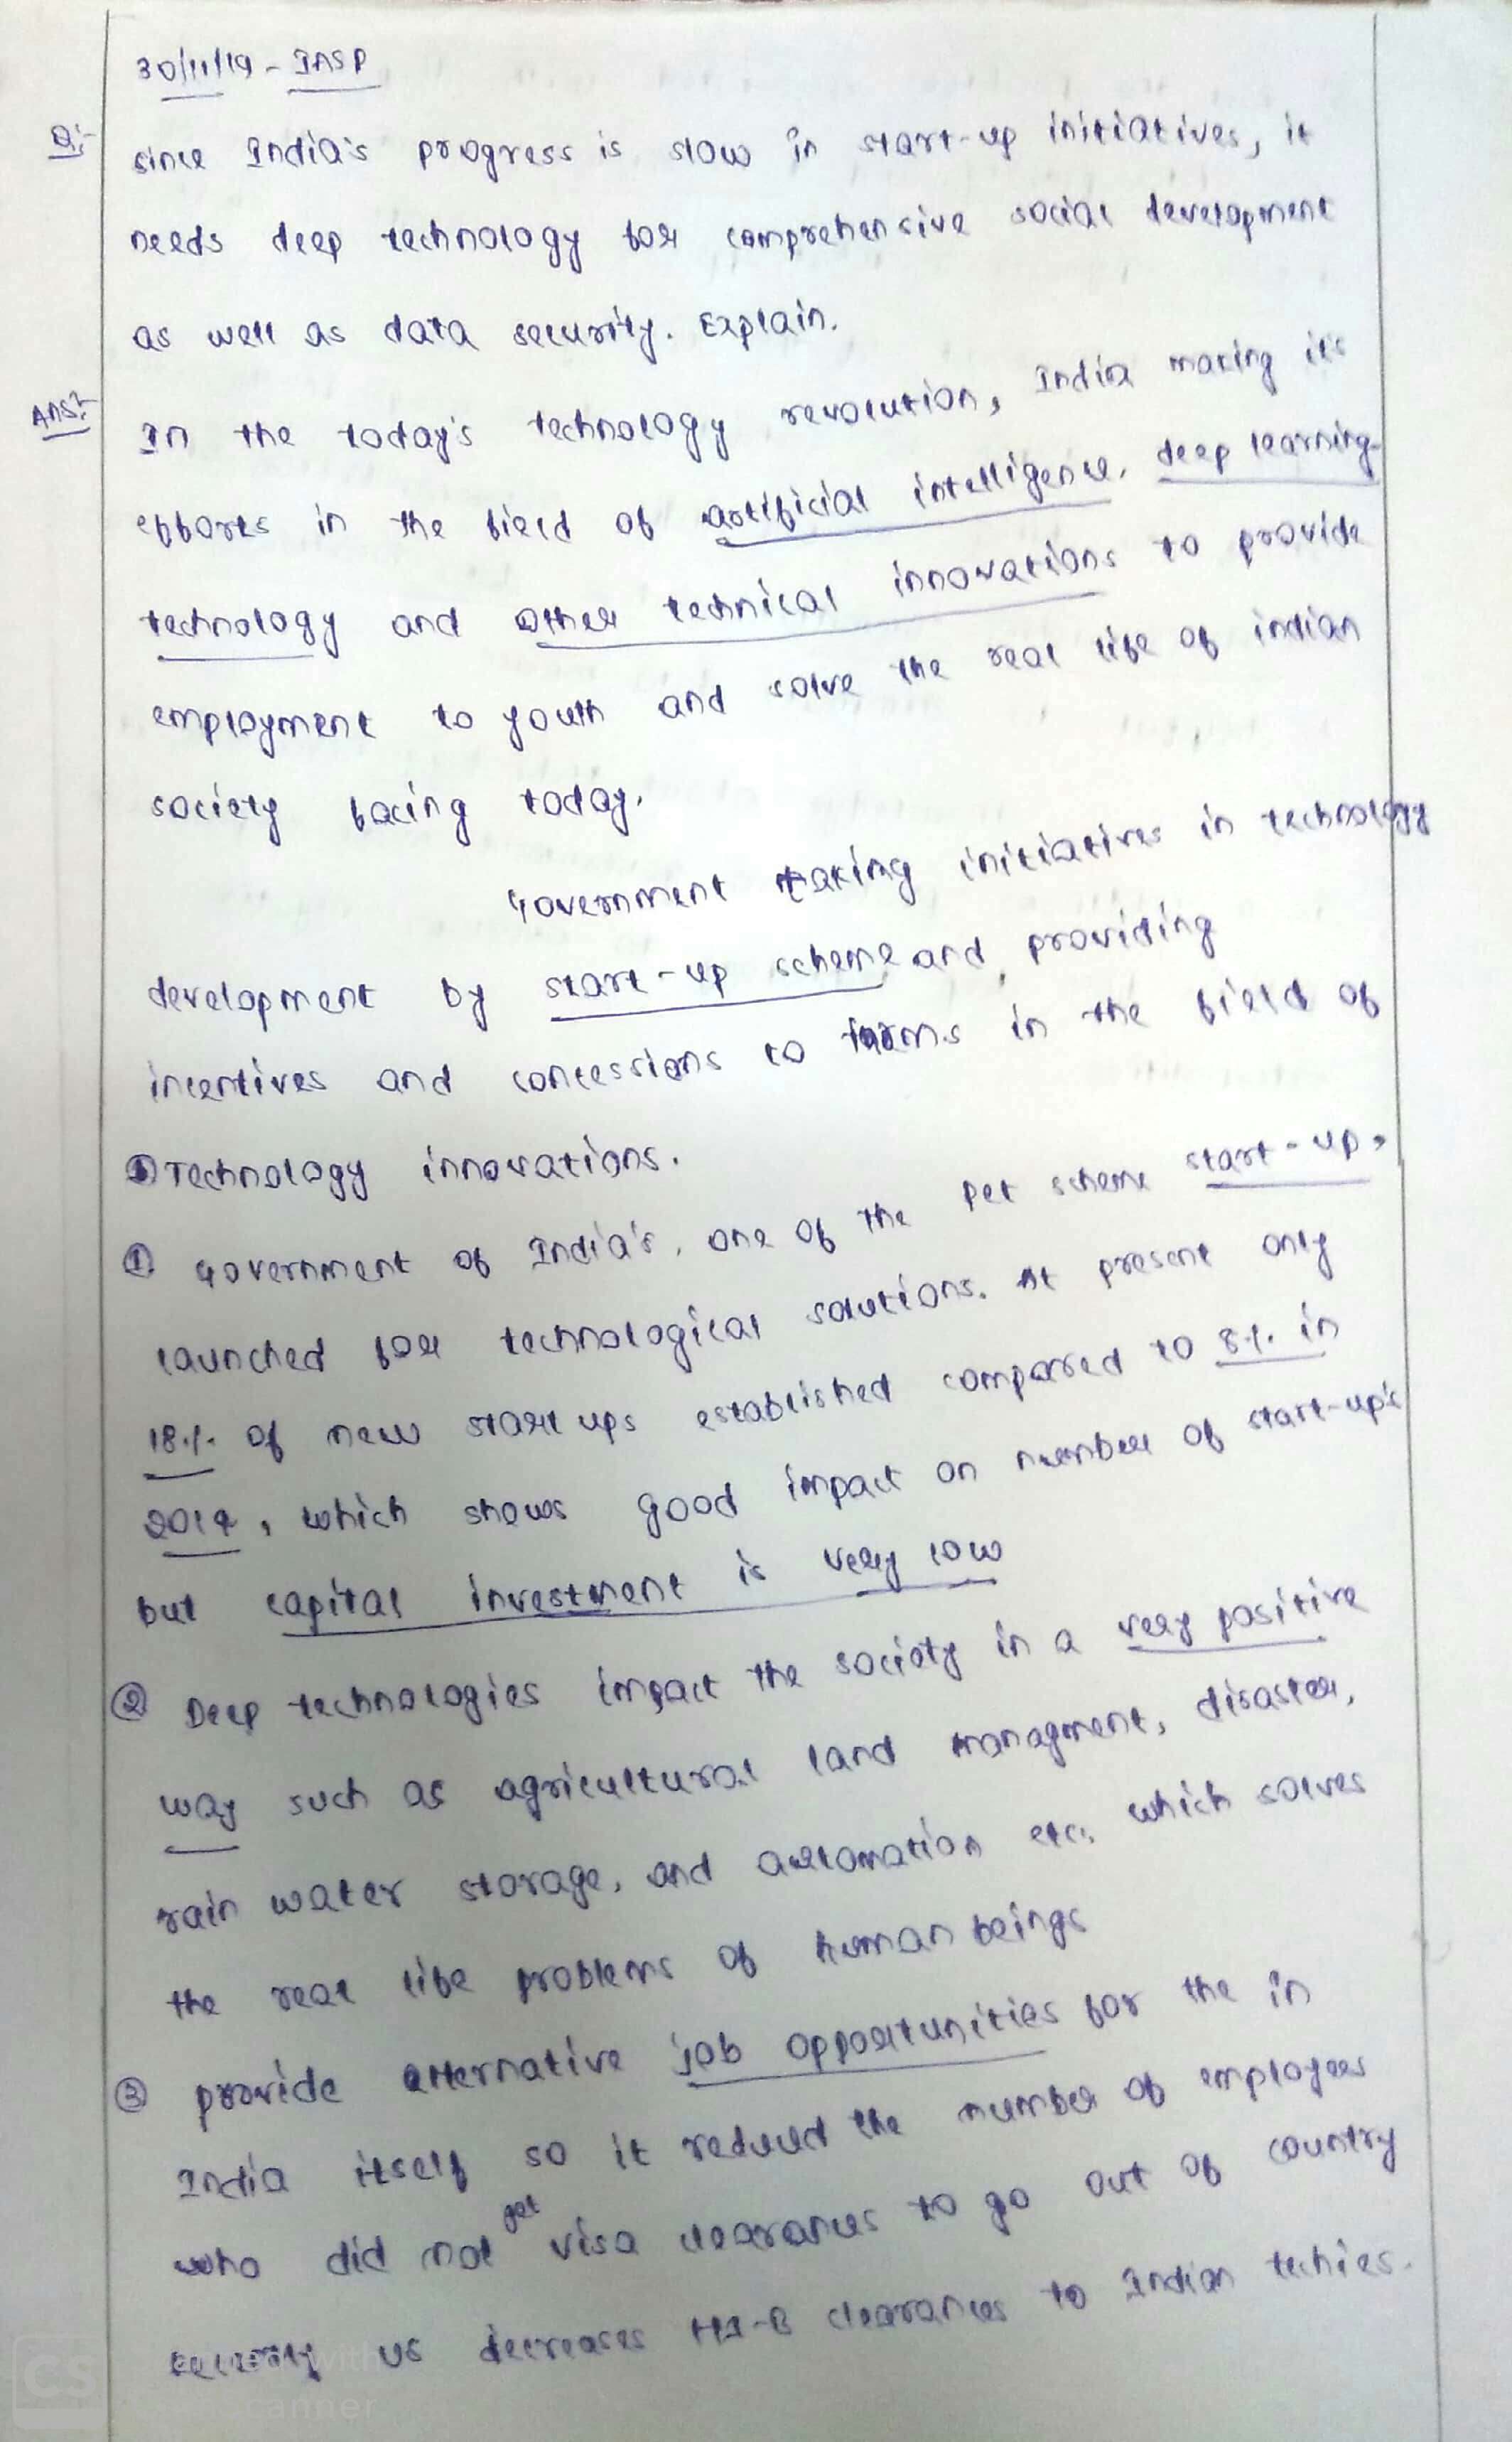 30/11/19 - INSP
Q:- since India's progress is slow in start-up initiatives, it
needs deep technology for comprehensive social development
as well as data security. Explain.
Ans:- In the today's technology revolution, India making it's
efforts in the field of artificial intelligence, deep learning
technology and other technical innovations to provide
employment to youth and solve the real life of indian
society facing today.
Government taking initiatives in technology
development by start-up scheme and, providing
incentives and concessions to farms in the field of
Technology innovations.
① Government of India's, one of the pet scheme start-up,
launched for technological solutions. At present only
18% of new start ups established compared to 8% in
2014, which shows good impact on number of start-up's
but capital investment is very low
② Deep technologies impact the society in a very positive
way such as agricultural land managment, disaster,
rain water storage, and automation etc, which solves
the real life problems of human beings
③ provide alternative job opportunities for the in
India itself so it reduced the number of employees
who did not get visa clearances to go out of country
recently US decreases H1-B clearances to Indian techies.
CS